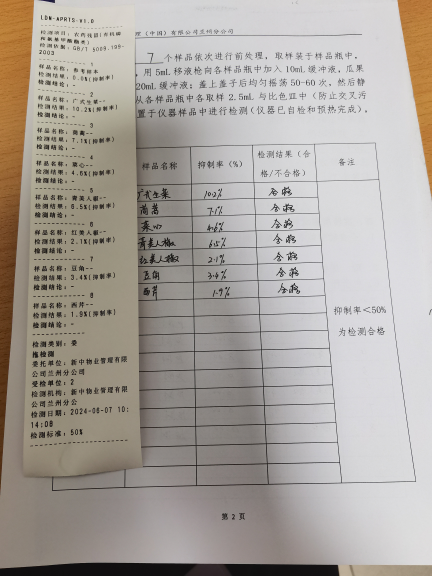 LDM-APRTS-V1.0
检测项目: 农药残留(有机磷
和氨基甲酸酯类)
检测依据: GB/T 5009.199-
2003
1
样品名称: 参考样本
检测结果: 0.0%(抑制率)
检测结论: -
2
样品名称: 广式生菜--
检测结果: 10.2%(抑制率)
检测结论: -
3
样品名称: 茼蒿--
检测结果: 7.1%(抑制率)
检测结论: -
4
样品名称: 菜心--
检测结果: 4.6%(抑制率)
检测结论: -
5
样品名称: 青美人椒--
检测结果: 6.5%(抑制率)
检测结论: -
6
样品名称: 红美人椒--
检测结果: 2.1%(抑制率)
检测结论: -
7
样品名称: 豆角--
检测结果: 3.4%(抑制率)
检测结论: -
8
样品名称: 西芹--
检测结果: 1.9%(抑制率)
检测结论: -
检测类别: 委
托检测
委托单位: 新中物业管理有限
公司兰州分公司
受检单位: 2
检测机构: 新中物业管理有限
公司兰州分公
检测日期: 2024-06-07 10:
14:08
检测标准: 50%
理（中国）有限公司兰州分公司
7 个样品依次进行前处理，取样装于样品瓶中，
，用 5mL 移液枪向各样品瓶中加入 10mL 缓冲液，瓜果
20mL 缓冲液；盖上盖子后均匀摇荡 50-60 次，然后静
从各样品瓶中各取样 2.5mL 与比色皿中（防止交叉污
置于仪器样品中进行检测（仪器已自检和预热完成）。
样品名称 抑制率（%） 检测结果（合格/不合格） 备注
广式生菜 10.2% 合格
茼蒿 7.1% 合格
菜心 4.6% 合格
青美人椒 6.5% 合格
红美人椒 2.1% 合格
豆角 3.4% 合格
西芹 1.9% 合格
抑制率＜50%
为检测合格
第 2 页